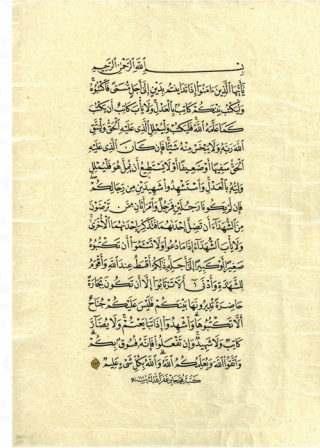 بِسْمِ اللَّهِ الرَّحْمَٰنِ الرَّحِيمِ
يَا أَيُّهَا الَّذِينَ ءَامَنُوا إِذَا تَدَايَنتُم بِدَيْنٍ إِلَىٰ أَجَلٍ مُّسَمًّى فَاكْتُبُوهُ
وَلْيَكْتُب بَّيْنَكُمْ كَاتِبٌ بِالْعَدْلِ وَلَا يَأْبَ كَاتِبٌ أَن يَكْتُبَ
كَمَا عَلَّمَهُ اللَّهُ فَلْيَكْتُبْ وَلْيُمْلِلِ الَّذِي عَلَيْهِ الْحَقُّ وَلْيَتَّقِ
اللَّهَ رَبَّهُ وَلَا يَبْخَسْ مِنْهُ شَيْئًا فَإِن كَانَ الَّذِي عَلَيْهِ
الْحَقُّ سَفِيهًا أَوْ ضَعِيفًا أَوْ لَا يَسْتَطِيعُ أَن يُمِلَّ هُوَ فَلْيُمْلِلْ
وَلِيُّهُ بِالْعَدْلِ وَاسْتَشْهِدُوا شَهِيدَيْنِ مِن رِّجَالِكُمْ
فَإِن لَّمْ يَكُونَا رَجُلَيْنِ فَرَجُلٌ وَامْرَأَتَانِ مِمَّن تَرْضَوْنَ
مِنَ الشُّهَدَاءِ أَن تَضِلَّ إِحْدَاهُمَا فَتُذَكِّرَ إِحْدَاهُمَا الْأُخْرَىٰ
وَلَا يَأْبَ الشُّهَدَاءُ إِذَا مَا دُعُوا وَلَا تَسْأَمُوا أَن تَكْتُبُوهُ
صَغِيرًا أَوْ كَبِيرًا إِلَىٰ أَجَلِهِ ذَٰلِكُمْ أَقْسَطُ عِندَ اللَّهِ وَأَقْوَمُ
لِلشَّهَادَةِ وَأَدْنَىٰ أَلَّا تَرْتَابُوا إِلَّا أَن تَكُونَ تِجَارَةً
حَاضِرَةً تُدِيرُونَهَا بَيْنَكُمْ فَلَيْسَ عَلَيْكُمْ جُنَاحٌ
أَلَّا تَكْتُبُوهَا وَأَشْهِدُوا إِذَا تَبَايَعْتُمْ وَلَا يُضَارَّ
كَاتِبٌ وَلَا شَهِيدٌ وَإِن تَفْعَلُوا فَإِنَّهُ فُسُوقٌ بِكُمْ
وَاتَّقُوا اللَّهَ وَيُعَلِّمُكُمُ اللَّهُ وَاللَّهُ بِكُلِّ شَيْءٍ عَلِيمٌ